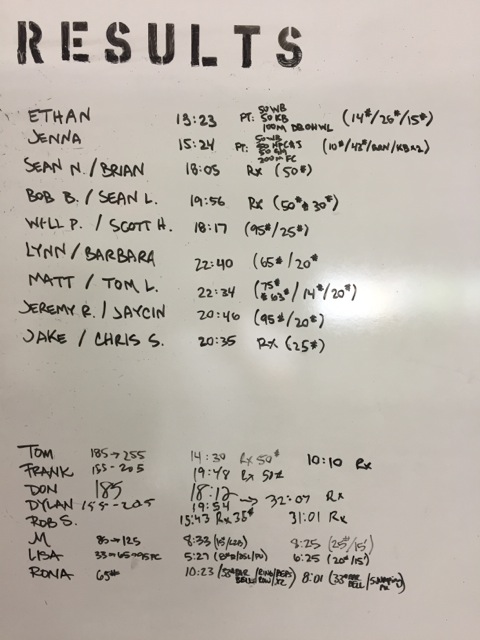 RESULTS
ETHAN 13:23 PT: 50WB 50KB 100M DBOHWL (14#/26#/15#)
JENNA 15:24 PT: 50WB 50 HPC&J 50 200m FC (10#/42#/BAN/KBx2)
SEAN N. / BRIAN 18:05 Rx (50#)
BOB B. / SEAN L. 19:56 Rx (50# & 30#)
WILL P. / SCOTT H. 18:17 (95#/25#)
LYNN / BARBARA 22:40 (65#/20#
MATT / TOM L. 22:34 (75# & 63#/14#/20#)
JEREMY R. / JAYCIN 20:46 (95#/20#)
JAKE / CHRIS S. 20:35 Rx (25#)
TOM 185→255 14:30 Rx 50# 10:10 Rx
FRANK 155-205 19:48 Rx 50#
DON 185 18:12 → 32:07 Rx
DYLAN 155-205 19:54
ROB S. 15:43 Rx 35# 31:01 Rx
M 85→125 8:33 8:25 (25#/15')
LISA 33→65→95PC 5:27 6:25 (20#/15')
RONA 65# 10:23 (33#BAR BELL / RING 8:01 (33#BAR BELL/